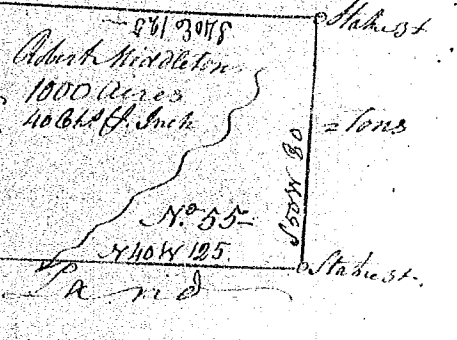 S40E 125
Stake 3t
Robert Middleton
1000 Acres
40 Chs P. Inch
= Tons
S50W 80
No 55-
N40W 125
Stake 3t.
Land